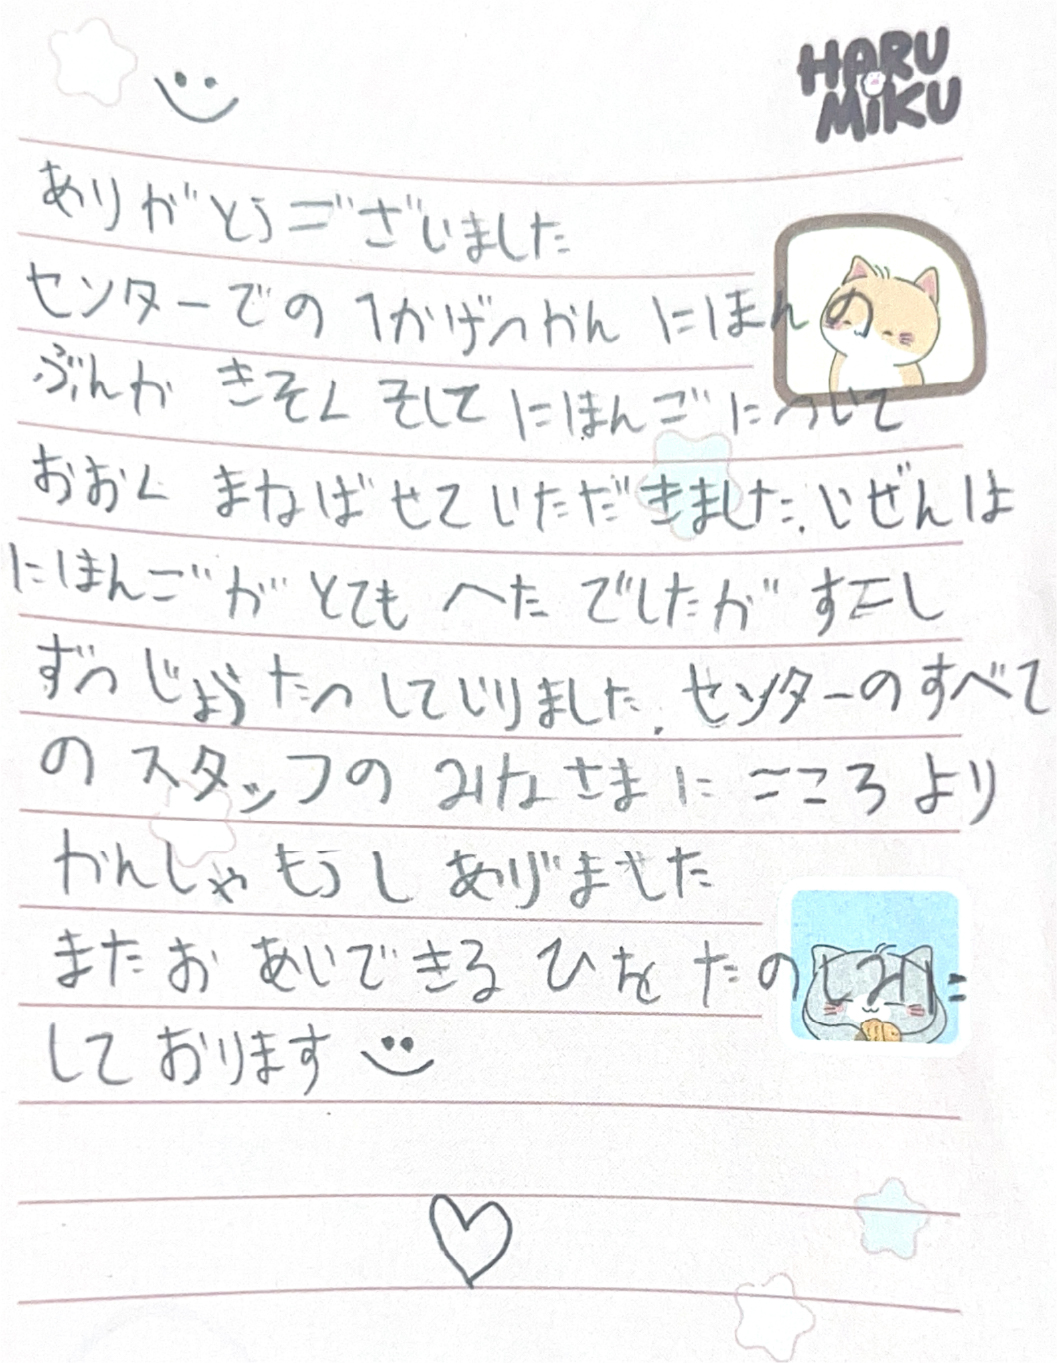 HARU
MiKU
ありがとうございました
センターでの 1かげつかん にほんの
ぶんか きそく そして にほんご について
おおく まなばせていただきました. いぜんは
にほんごが とても へた でしたが すこし
ずつ じょうたつ していりました. センターのすべて
の スタッフの みなさま に こころ より
かんしゃ もうし ありげませた
また お あいできる ひを たのしみに
して おります